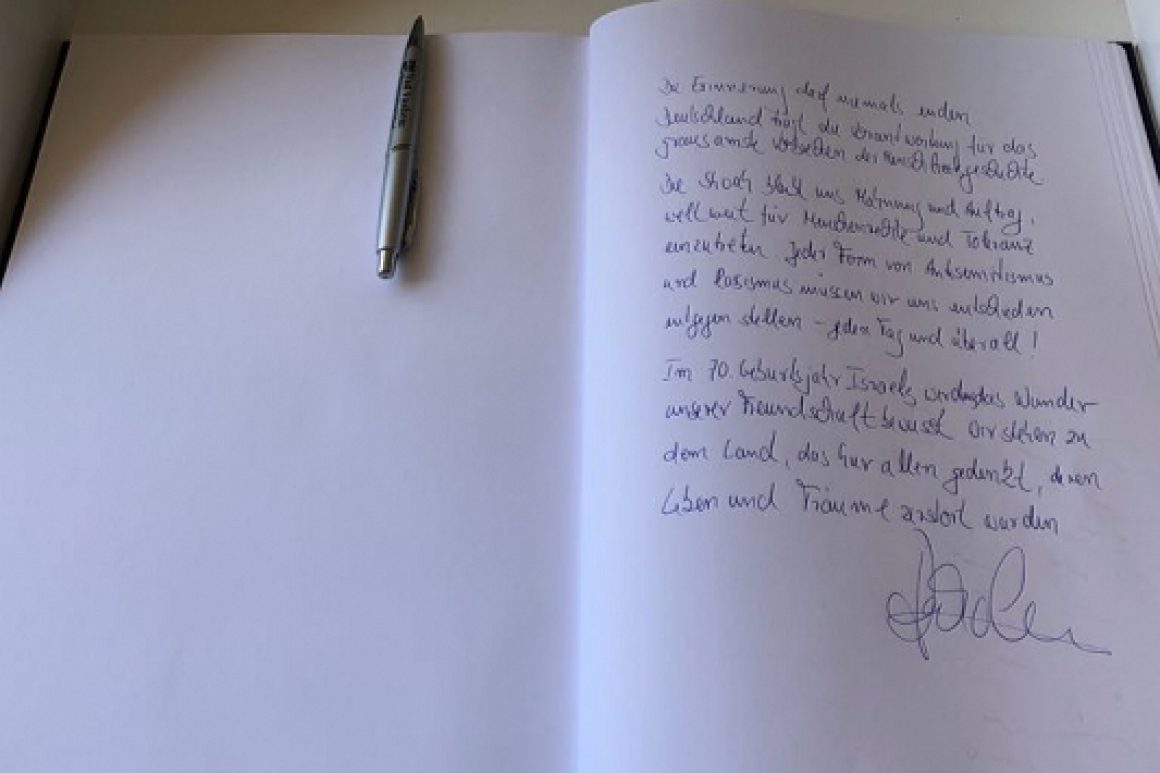 Die Erinnerung darf niemals enden
Deutschland trägt die Verantwortung für das
grausamste Verbrechen der Menschheitsgeschichte
Die Shoah bleibt uns Mahnung und Auftrag,
weltweit für Menschenrechte und Toleranz
einzutreten. Jeder Form von Antisemitismus
und Rassismus müssen wir uns entschieden
entgegen stellen – jeden Tag und überall!
Im 70. Geburtsjahr Israels wird uns das Wunder
unserer Freundschaft bewusst. Wir stehen zu
dem Land, das hier allen gedenkt, deren
Leben und Träume zerstört wurden